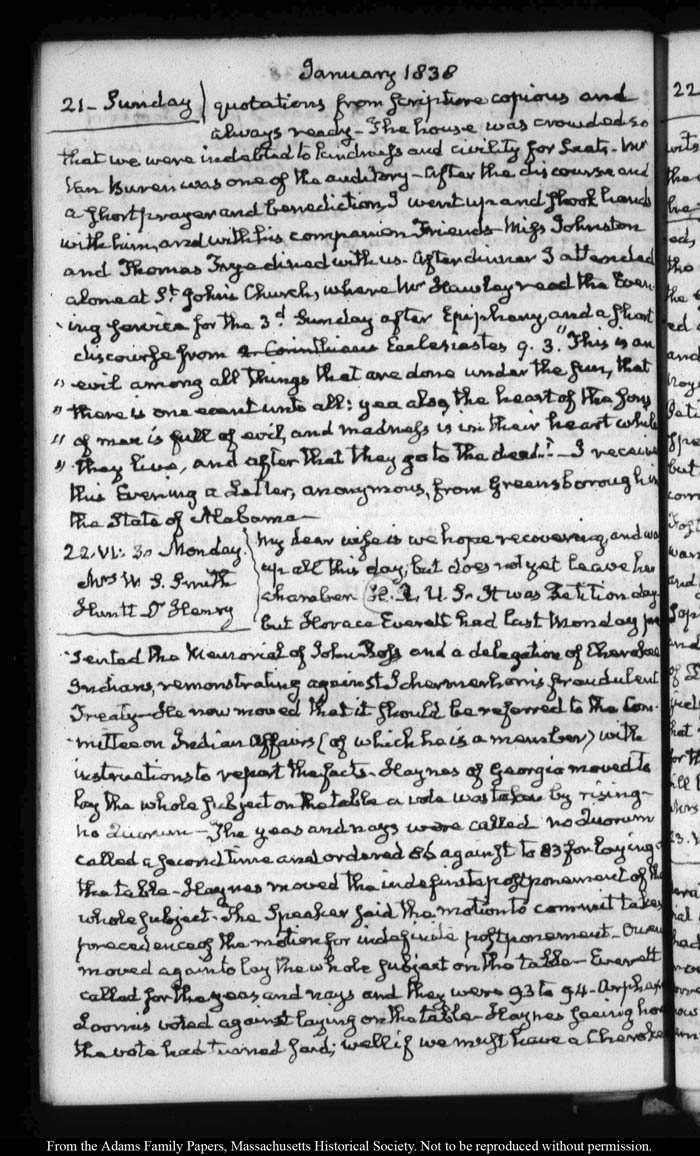 January 1838
21 - Sunday
quotations from Scripture copious and
always ready - The house was crowded so
that we were indebted to kindness and civility for Seats. Mr
Van Buren was one of the auditory - After the discourse and
a short prayer and benediction, I went up and shook hands
with him, and with his companion Friends - Miss Johnston
and Thomas Frye dined with us. After dinner I attended
alone at St. John's Church, where Mr Hawley read the Even-
-ing Service for the 3d Sunday after Epiphany and a short
discourse from 2 Corinthians Ecclesiastes 9. 3. "This is an
" evil among all things that are done under the sun, that
" there is one event unto all: yea also, the heart of the sons
" of men is full of evil, and madness is in their heart while
" they live, and after that they go to the dead." - I receive
this Evening a Letter, anonymous, from Greensborough in
the State of Alabama -
22. VI: 30 Monday.
Mrs W. S. Smith
Huntt Dr Henry
My dear wife is we hope recovering, and was
up all this day, but does not yet leave her
chamber H. R. U. S. It was Petition day
but Horace Everett had last Monday pre
-sented the Memorial of John Ross and a delegation of Cherokee
Indians, remonstrating against Schermerhorn's fraudulent
Treaty - He now moved that it should be referred to the Com-
-mittee on Indian Affairs (of which he is a member) with
instructions to report the facts - Haynes of Georgia moved to
lay the whole subject on the table a vote was taken by rising -
no quorum - The yeas and nays were called no quorum
called a second time and ordered 86 against to 83 for laying
the table - Haynes moved the indefinite postponement of the
whole subject. The Speaker said the motion to commit takes
precedence of the motion for indefinite postponement - Owens
moved again to lay the whole subject on the table - Everett
called for the yeas and nays and they were 93 to 94 - Arphaxed
Loomis voted against laying on the table - Haynes seeing how
the vote had turned said; well if we must have a Cherokee
From the Adams Family Papers, Massachusetts Historical Society. Not to be reproduced without permission.